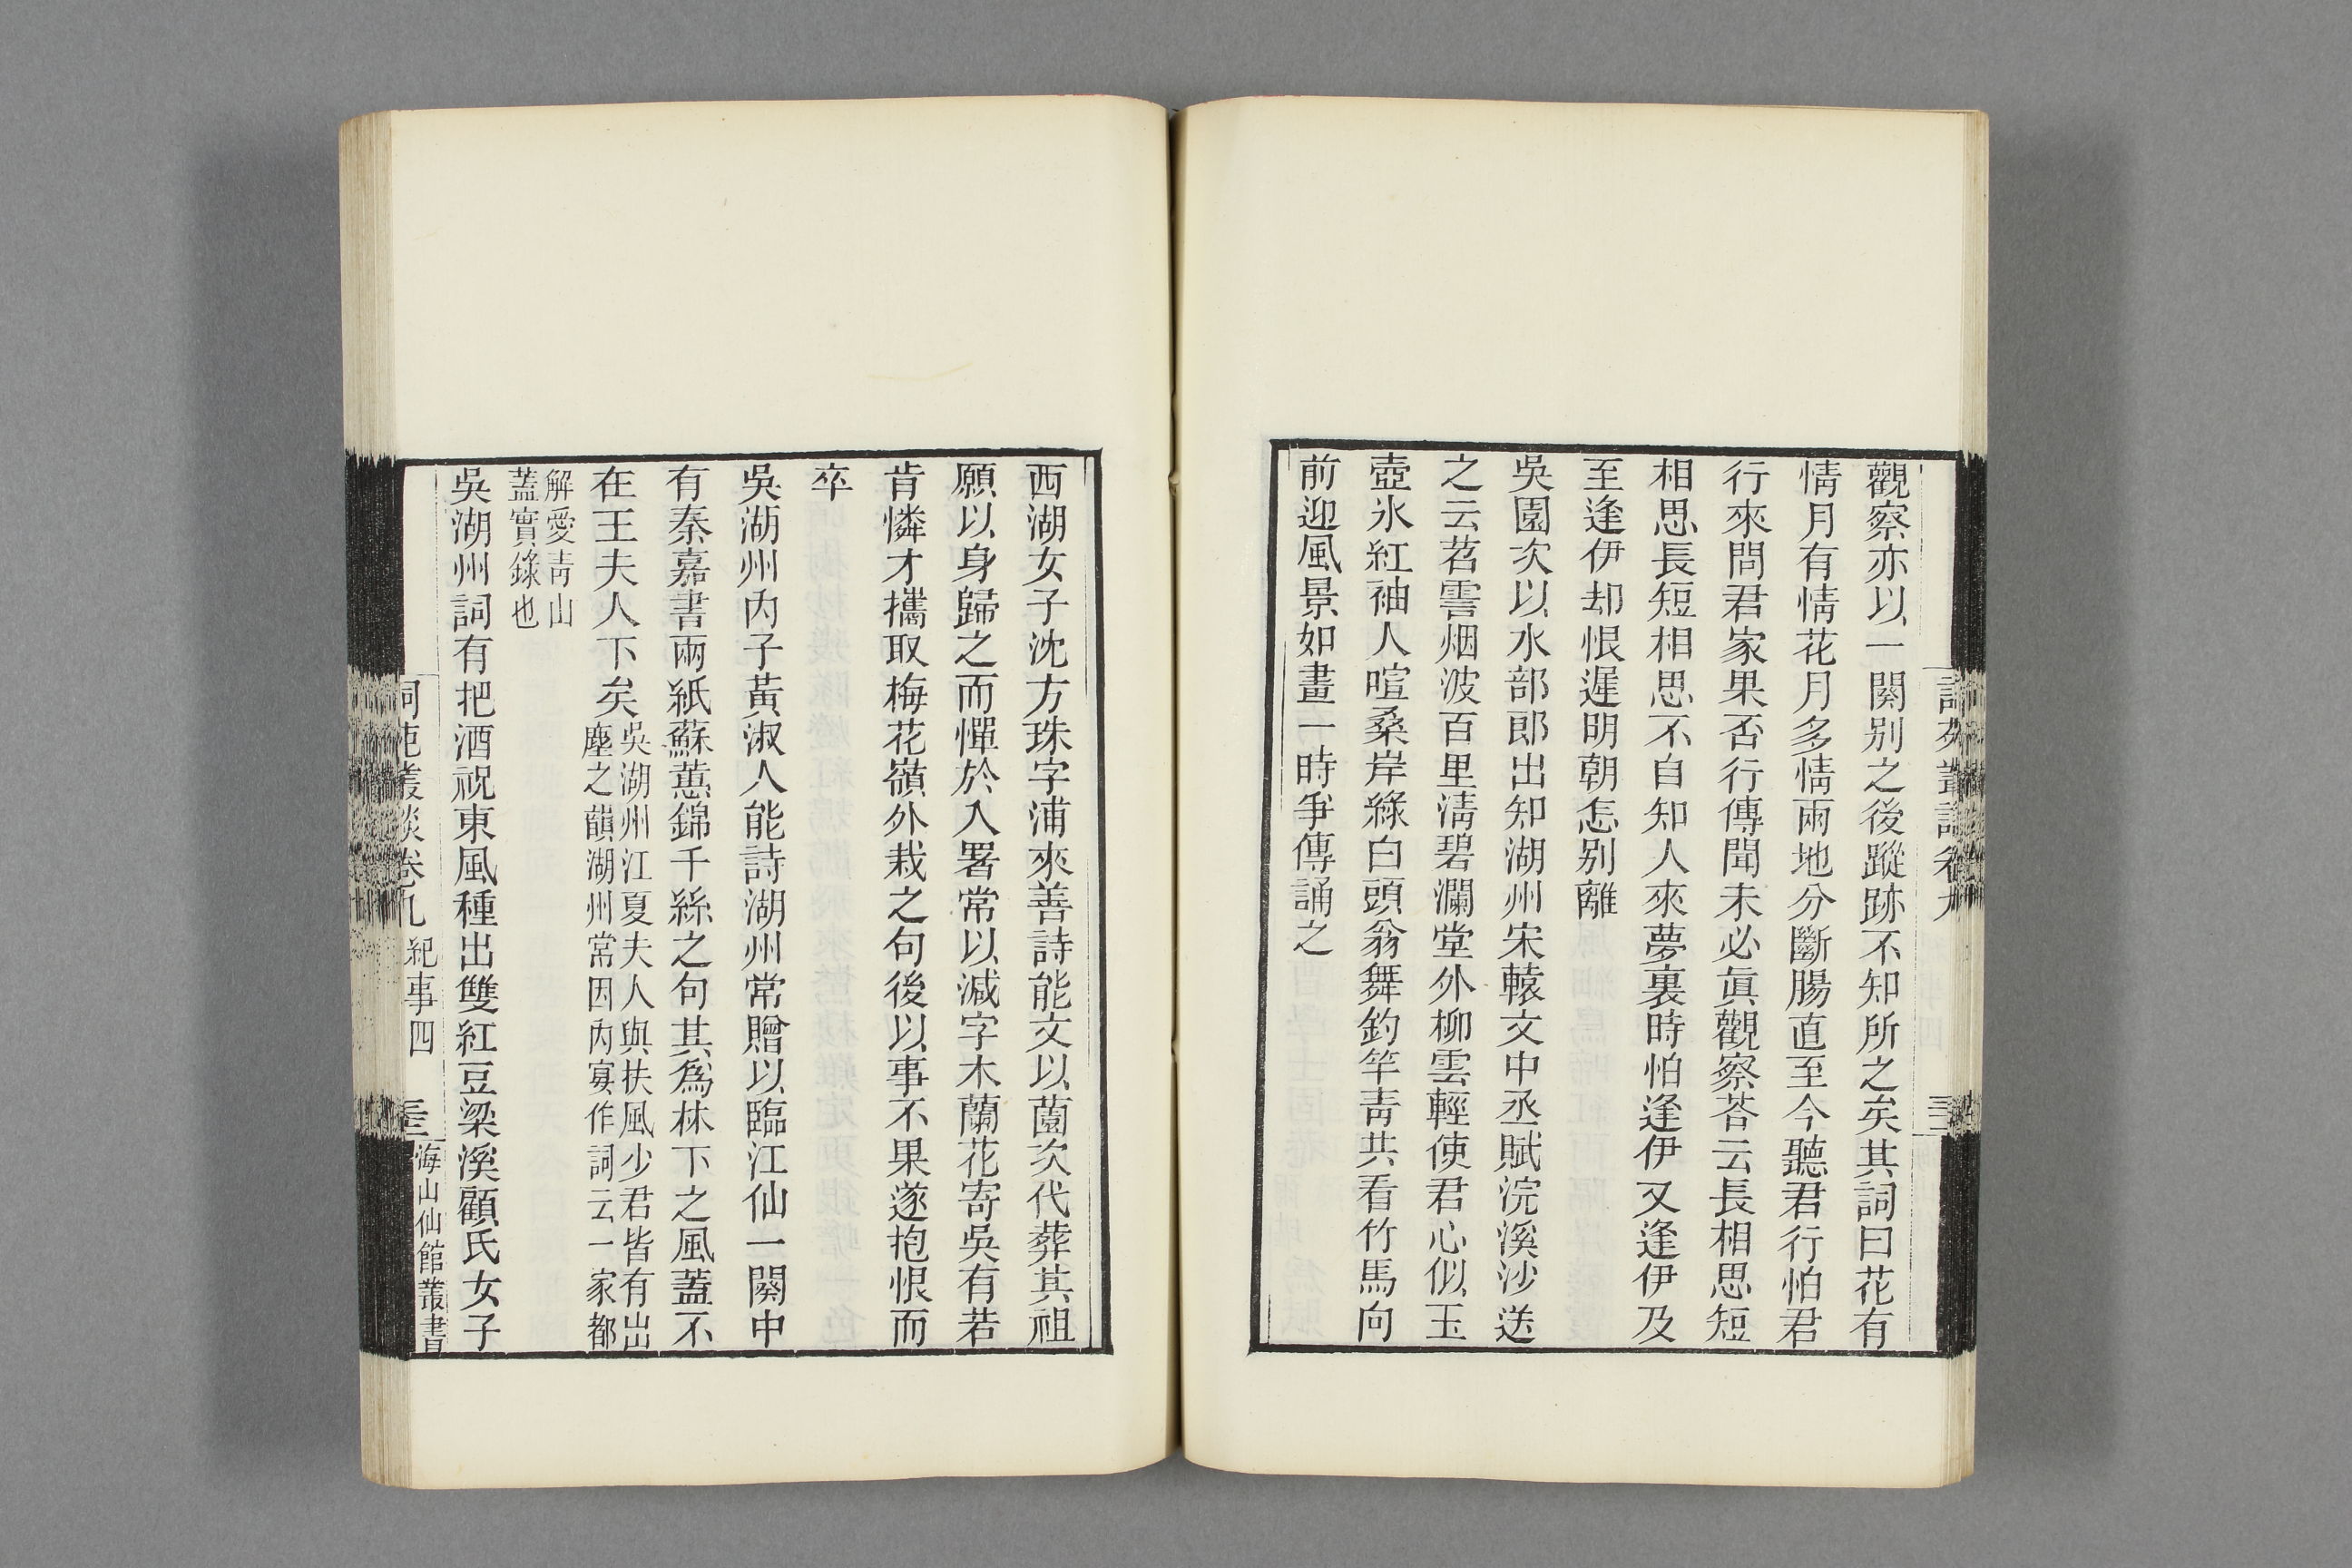 觀察亦以一闋別之後蹤跡不知所之矣其詞曰花有
情月有情花月多情兩地分斷腸直至今聽君行怕君
行來問君家果否行傳聞未必眞觀察荅云長相思短
相思長短相思不自知人來夢裏時怕逢伊又逢伊及
至逢伊却恨遲明朝怎別離
吳園次以水部郎出知湖州宋轅文中丞賦浣溪沙送
之云苕霅烟波百里淸碧瀾堂外柳雲輕使君心似玉
壺氷紅袖人喧桑岸綠白頭翁舞釣竿靑共看竹馬向
前迎風景如畫一時爭傳誦之
西湖女子沈方珠字浦來善詩能文以薗次代葬其祖
願以身歸之而憚於入署常以減字木蘭花寄吳有若
肯憐才攜取梅花嶺外栽之句後以事不果遂抱恨而
卒
吳湖州內子黃淑人能詩湖州常贈以臨江仙一闋中
有秦嘉書兩紙蘇蕙錦千絲之句其爲林下之風蓋不
在王夫人下矣
吳湖州江夏夫人與扶風少君皆有出
塵之韻湖州常因內宴作詞云一家都
解愛靑山
蓋實錄也
吳湖州詞有把酒祝東風種出雙紅豆梁溪顧氏女子
詞苑叢談卷九 紀事四 海山仙館叢書